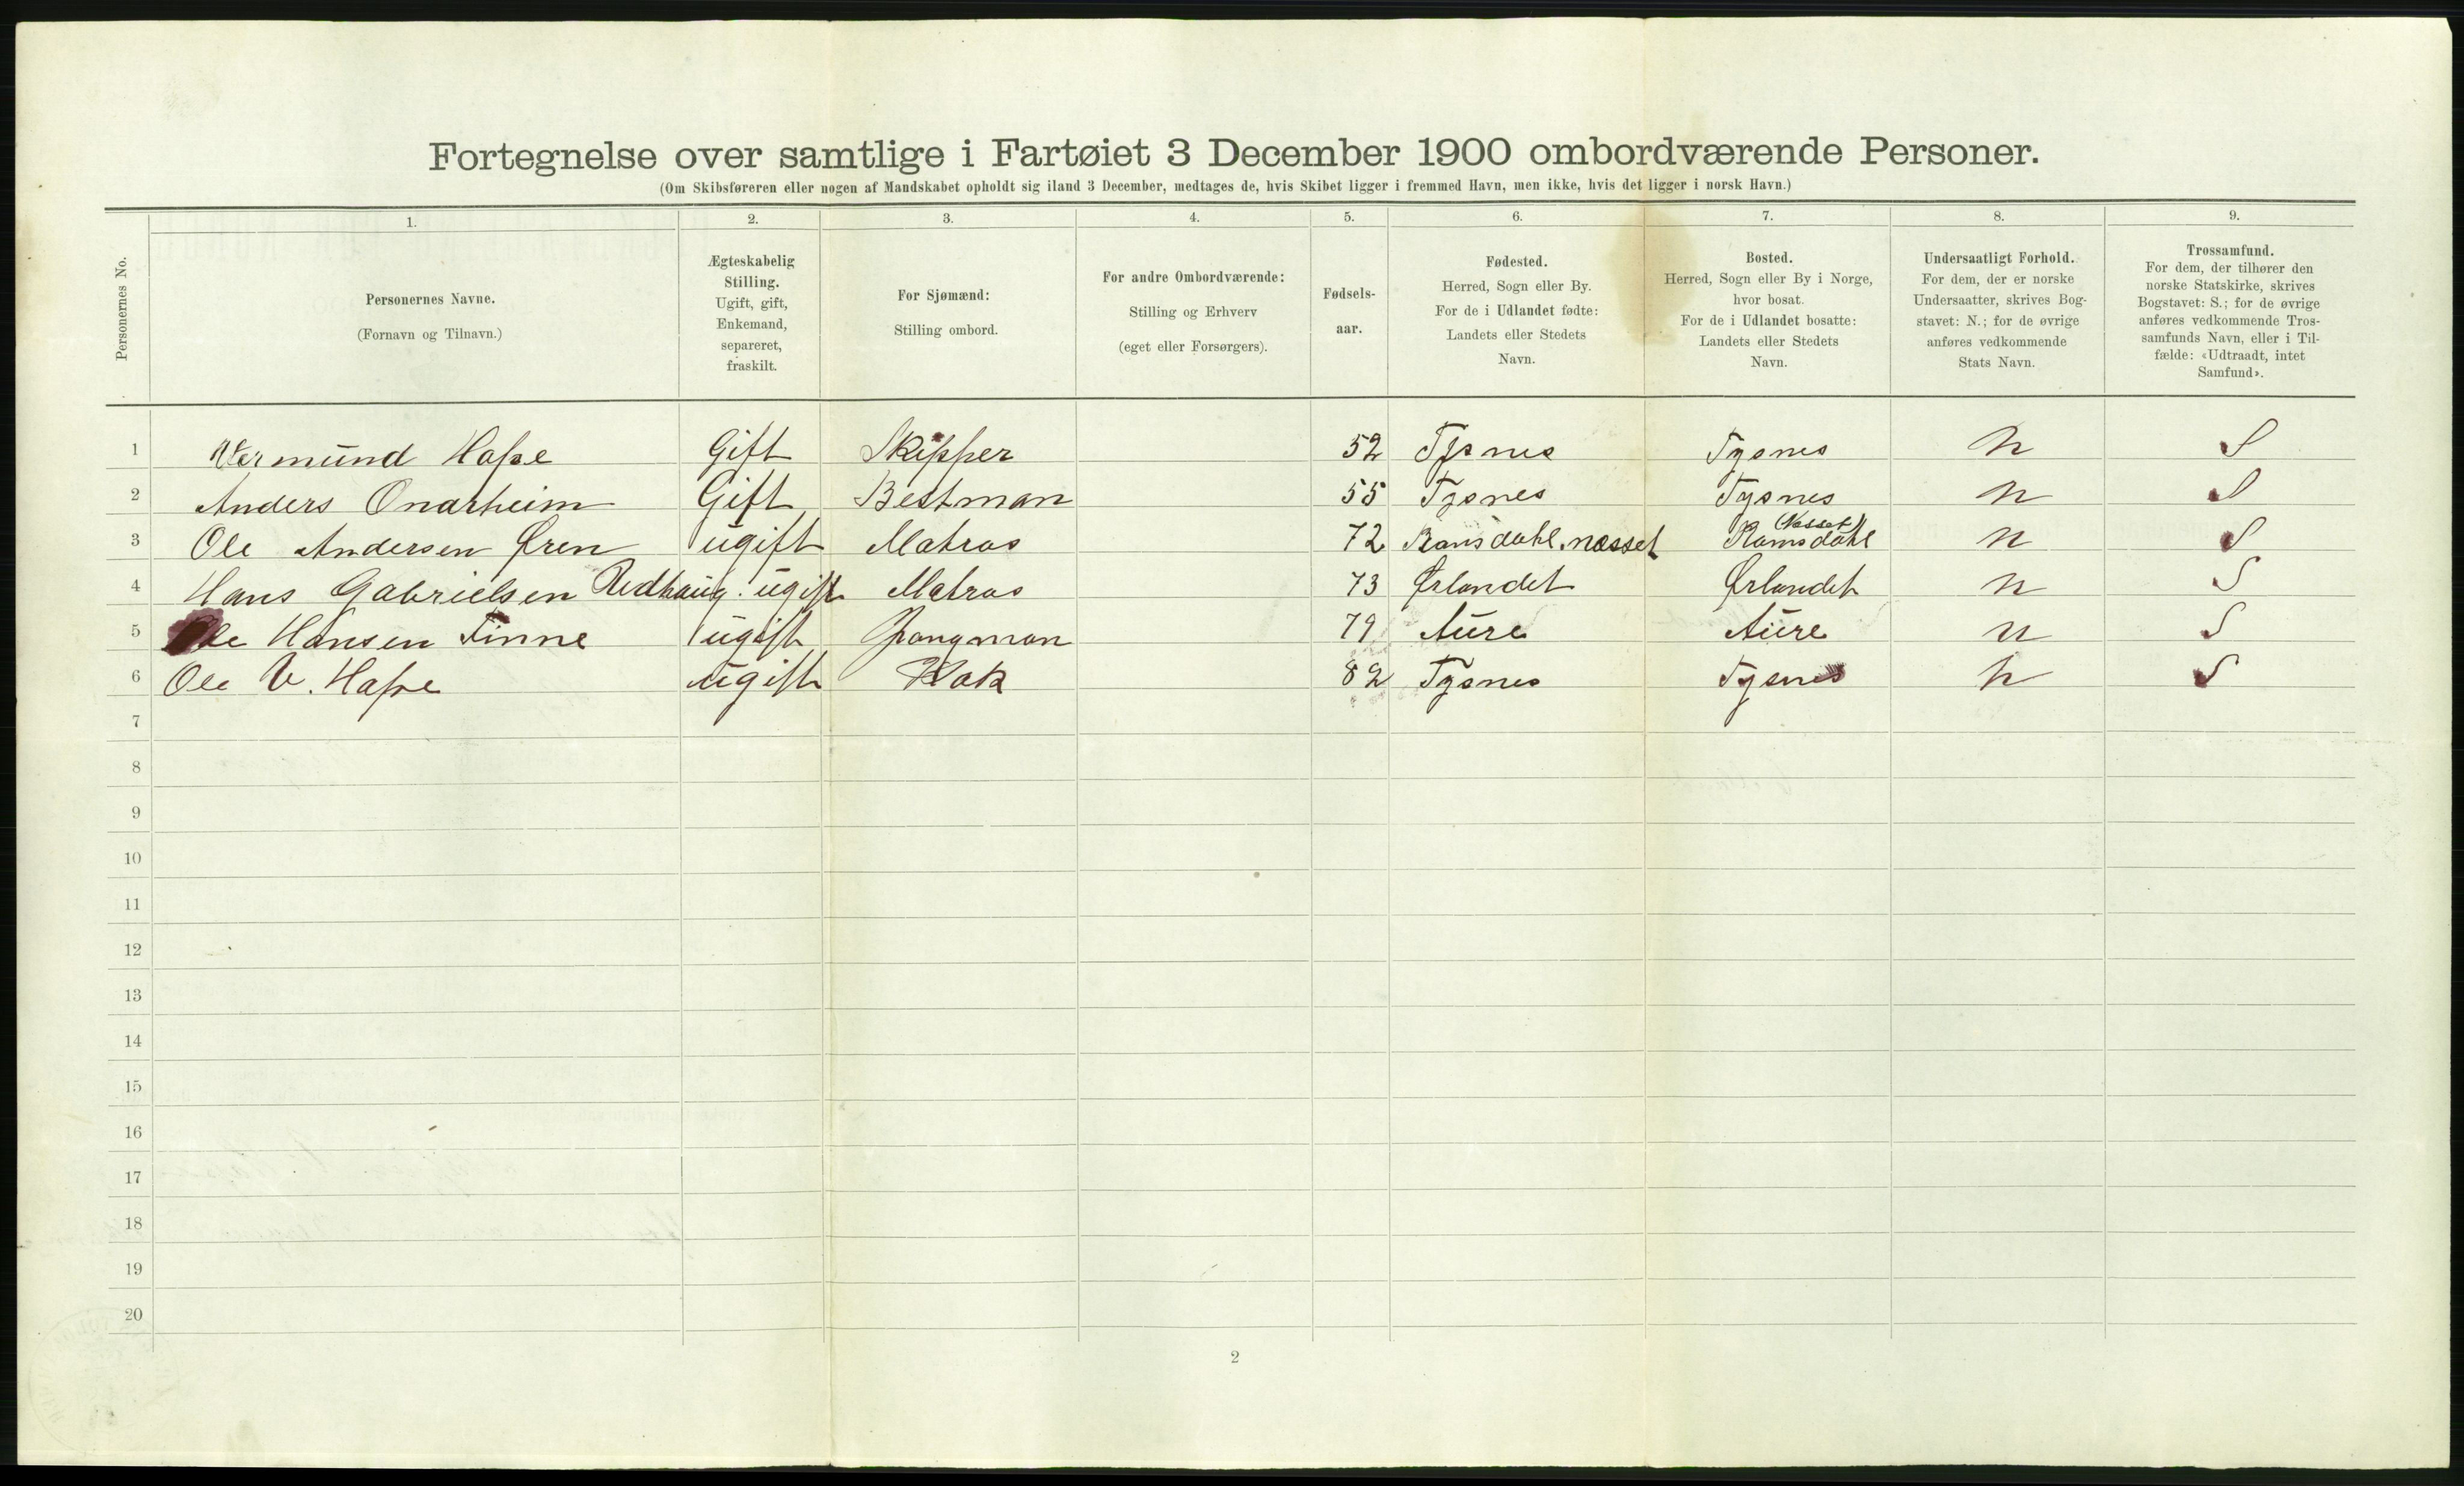 Fortegnelse over samtlige i Fartøiet 3 December 1900 ombordværende Personer.
(Om Skibsføreren eller nogen af Mandskabet opholdt sig iland 3 December, medtages de, hvis Skibet ligger i fremmed Havn, men ikke, hvis det ligger i norsk Havn.)
Personernes No.
1.
Personernes Navne.
(Fornavn og Tilnavn.)
2.
Ægteskabelig
Stilling.
Ugift, gift,
Enkemand,
separeret,
fraskilt.
3.
For Sjømænd:
Stilling ombord.
4.
For andre Ombordværende:
Stilling og Erhverv
(eget eller Forsørgers).
5.
Fødsels-
aar.
6.
Fødested.
Herred, Sogn eller By.
For de i Udlandet fødte:
Landets eller Stedets
Navn.
7.
Bosted.
Herred, Sogn eller By i Norge,
hvor bosat.
For de i Udlandet bosatte:
Landets eller Stedets
Navn.
8.
Undersaatligt Forhold.
For dem, der er norske
Undersaatter, skrives Bog-
stavet: N.; for de øvrige
anføres vedkommende
Stats Navn.
9.
Trossamfund.
For dem, der tilhører den
norske Statskirke, skrives
Bogstavet: S.; for de øvrige
anføres vedkommende Tros-
samfunds Navn, eller i Til-
fælde: «Udtraadt, intet
Samfund».
1 Vermund Hasse Gift Skipper 52 Tysnes Tysnes N S
2 Anders Onarheim Gift Bestman 55 Tysnes Tysnes N S
3 Ole Andersen Øren ugift Matros 72 nesset (Nesset) Ramsdahl N S
4 Hans Gabrielsen ugift Matros 73 Ørlandet Ørlandet N S
5 Ole Hansen Finne ugift Jongman 79 Aure Aure N S
6 Ole V. Hasse ugift Kok 82 Tysnes Tysnes N S
7
8
9
10
11
12
13
14
15
16
17
18
19
20
2